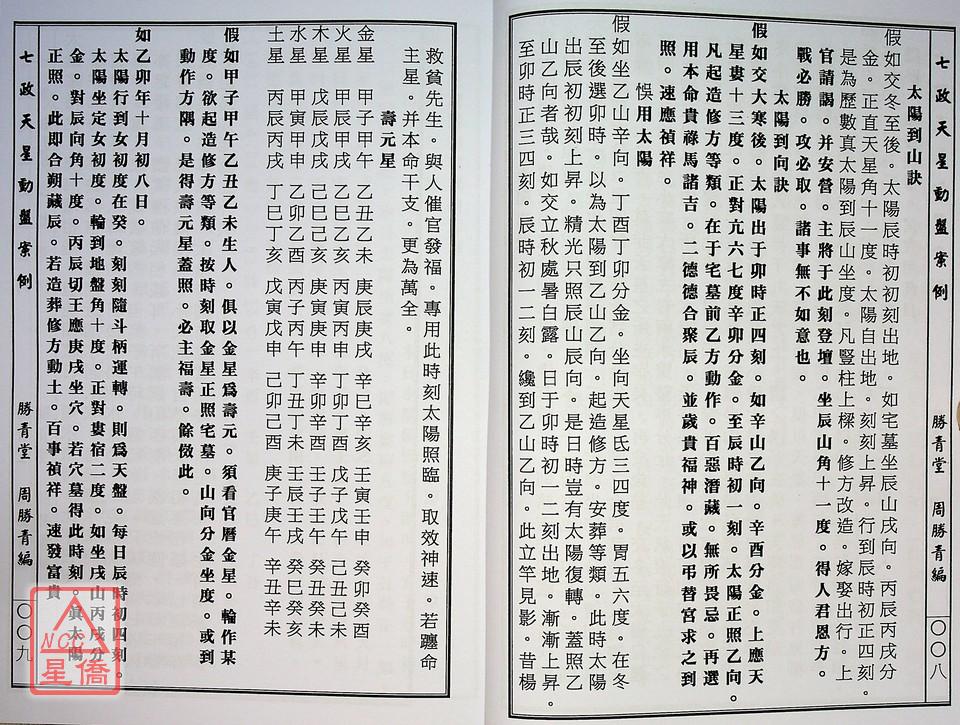 七政天星動盤案例
勝青堂 周勝青編
一〇〇八
太陽到山訣
假如交冬至後。太陽辰時初初刻出地。如宅墓坐辰山戌向。丙辰丙戌分
金。正直天星角十一度。太陽自出地。刻刻上昇。行到辰時初正四刻。
是為歷數真太陽到辰山坐度。凡豎柱上樑。修方改造。嫁娶出行。上
官請謁。并安營。主將于此刻登壇。坐辰山角十一度。得人君恩方。
戰必勝。攻必取。諸事無不如意也。
太陽到向訣
假如交大寒後。太陽出于卯時正四刻。如辛山乙向。辛酉分金。上應天
星婁十三度。正對亢六七度辛卯分金。至辰時初一刻。太陽正照乙向。
凡起造修方等類。在于宅墓前乙方動作。百惡潛藏。無所畏忌。再選
用本命貴祿馬諸吉。二德德合聚辰。並歲貴福神。或以弔替宮求之到
照。速應禎祥。
悞用太陽
假如坐乙山辛向。丁酉丁卯分金。坐向天星氐三四度。胃五六度。在冬
至後選卯時。以為太陽到乙山乙向。起造修方。安葬等類。此時太陽
出辰初初刻上昇。精光只照辰山辰向。是日時豈有太陽復轉。蓋照乙
山乙向者哉。如交立秋處暑白露。日于卯時初一二刻出地。漸漸上昇。
至卯時正三四刻。辰時初一二刻。纔到乙山乙向。此立竿見影。昔楊
救貧先生。與人催官發福。專用此時刻太陽照臨。取效神速。若躔命
主星。并本命干支。更為萬全。
壽元星
金星 甲子甲午 乙丑乙未 庚辰庚戌 辛巳辛亥 壬寅壬申 癸卯癸酉
火星 甲辰甲戌 乙巳乙亥 丙寅丙申 丁卯丁酉 戊子戊午 己丑己未
木星 戊辰戊戌 己巳己亥 庚寅庚申 辛卯辛酉 壬子壬午 癸丑癸未
水星 甲寅甲申 乙卯乙酉 丙子丙午 丁丑丁未 壬辰壬戌 癸巳癸亥
土星 丙辰丙戌 丁巳丁亥 戊寅戊申 己卯己酉 庚子庚午 辛丑辛未
假如甲子甲午乙丑乙未生人。俱以金星為壽元。須看官曆金星。輪作某
度。欲起造修方等類。按時刻取金星正照宅墓。山向分金坐度。或到
動作方隅。是得壽元星蓋照。必主福壽。餘倣此。
如乙卯年十月初八日。
太陽行到女初度在癸。刻刻隨斗柄運轉。則為天盤。每日辰時初四刻。
太陽坐定女初度。輪到地盤角十度。正對婁宿二度。如坐戌山丙戌分
金。對辰向角十度。丙辰切王應庚戌坐穴。若穴墓得此時刻。真太陽
正照。此即合朔藏辰。若造葬修方動土。百事禎祥。速發富貴
七政天星動盤案例
勝青堂 周勝青編
一〇〇九
NCC
星僑